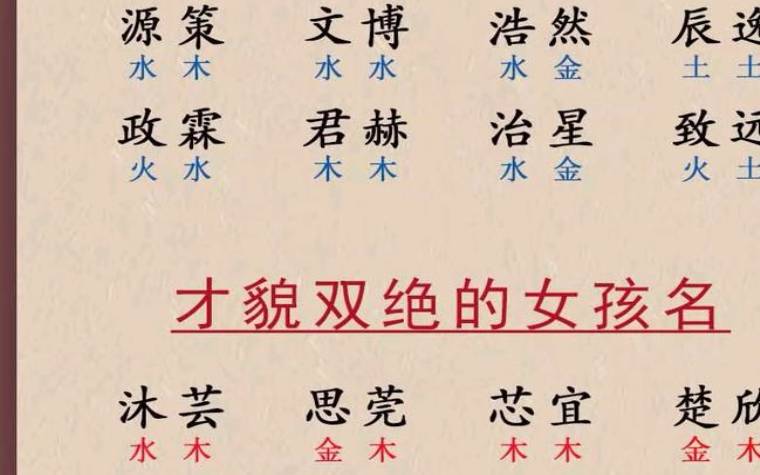 源策 文博 浩然 辰逸
水木 水水 水金 土土
政霖 君赫 治星 致远
火水 木木 水金 火土
才貌双绝的女孩名
沐芸 思莞 芯宜 楚欣
水木 金木 木木 金木